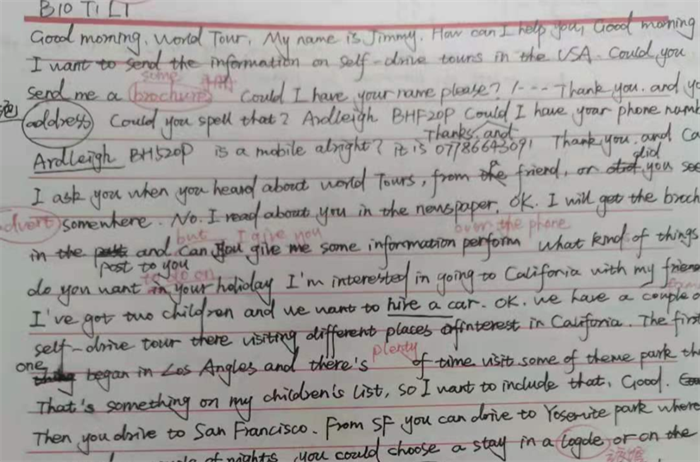 B10 T1 L1
Good morning, World Tour, My name is Jimmy. How can I help you, Good morning
I want to send the information on self-drive tours in the USA. Could you
send me a brochure Could I have your name please? 1--- Thank you. and yo
address Could you spell that? Ardleigh BHF20P Could I have your phone num
Thanks, and
Ardleigh BH520P is a mobile alright? it is 07786643091 Thank you. and Ca
did
I ask you when you heard about world Tours, from a friend, or you see
advert somewhere. No. I read about you in the newspaper, OK. I will get the broch
but I give you over the phone
in the and can you give me some information perform what kind of things
post to you
do you want in your holiday I'm interested in going to Califonia with my
I've got two children and we want to hire a car. OK. we have a couple o
self-drive tour there visiting different places ofinterest in Califonia. The first
one plenty
began in Los Angles and there's of time visit some of theme park th
That's something on my children's list, so I want to include that, Good.
Then you drive to San Francisco. From SF you can drive to Yosemite park where
of nights, you could choose a stay in a logde or on the